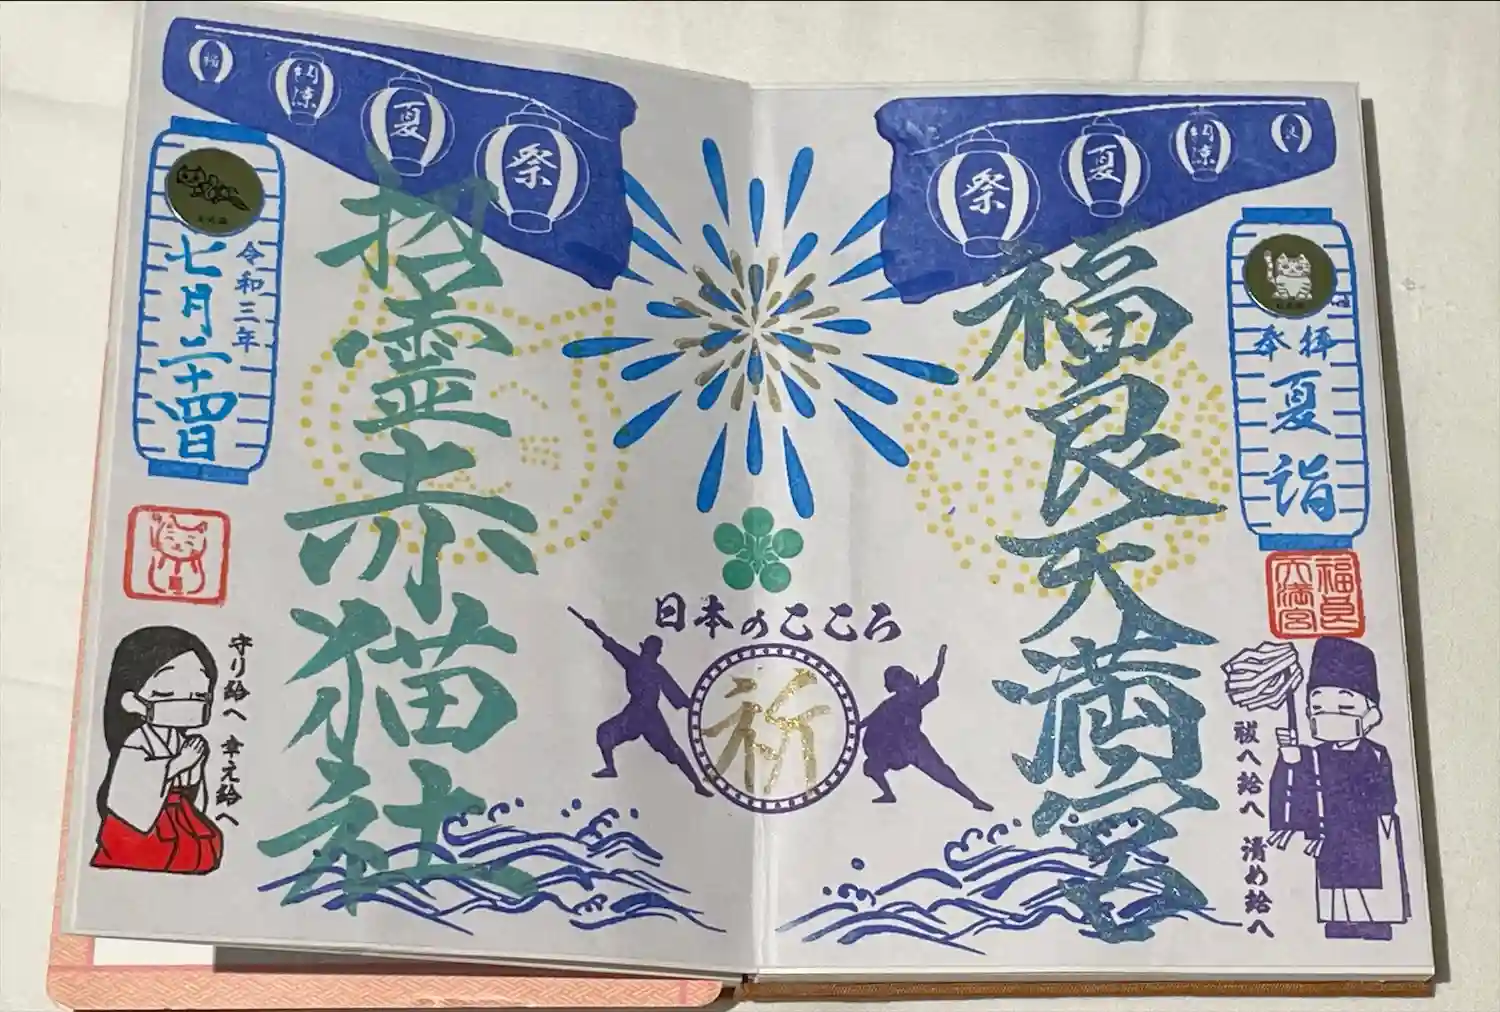 祭 夏 納涼 良
奉拝
夏詣
福良
天満宮
祓へ給へ 清め給へ
福良天満宮
日本のこころ
祈
福 納涼 夏 祭
招霊赤猫社
令和三年
七月二十四日
守り給へ 幸え給へ